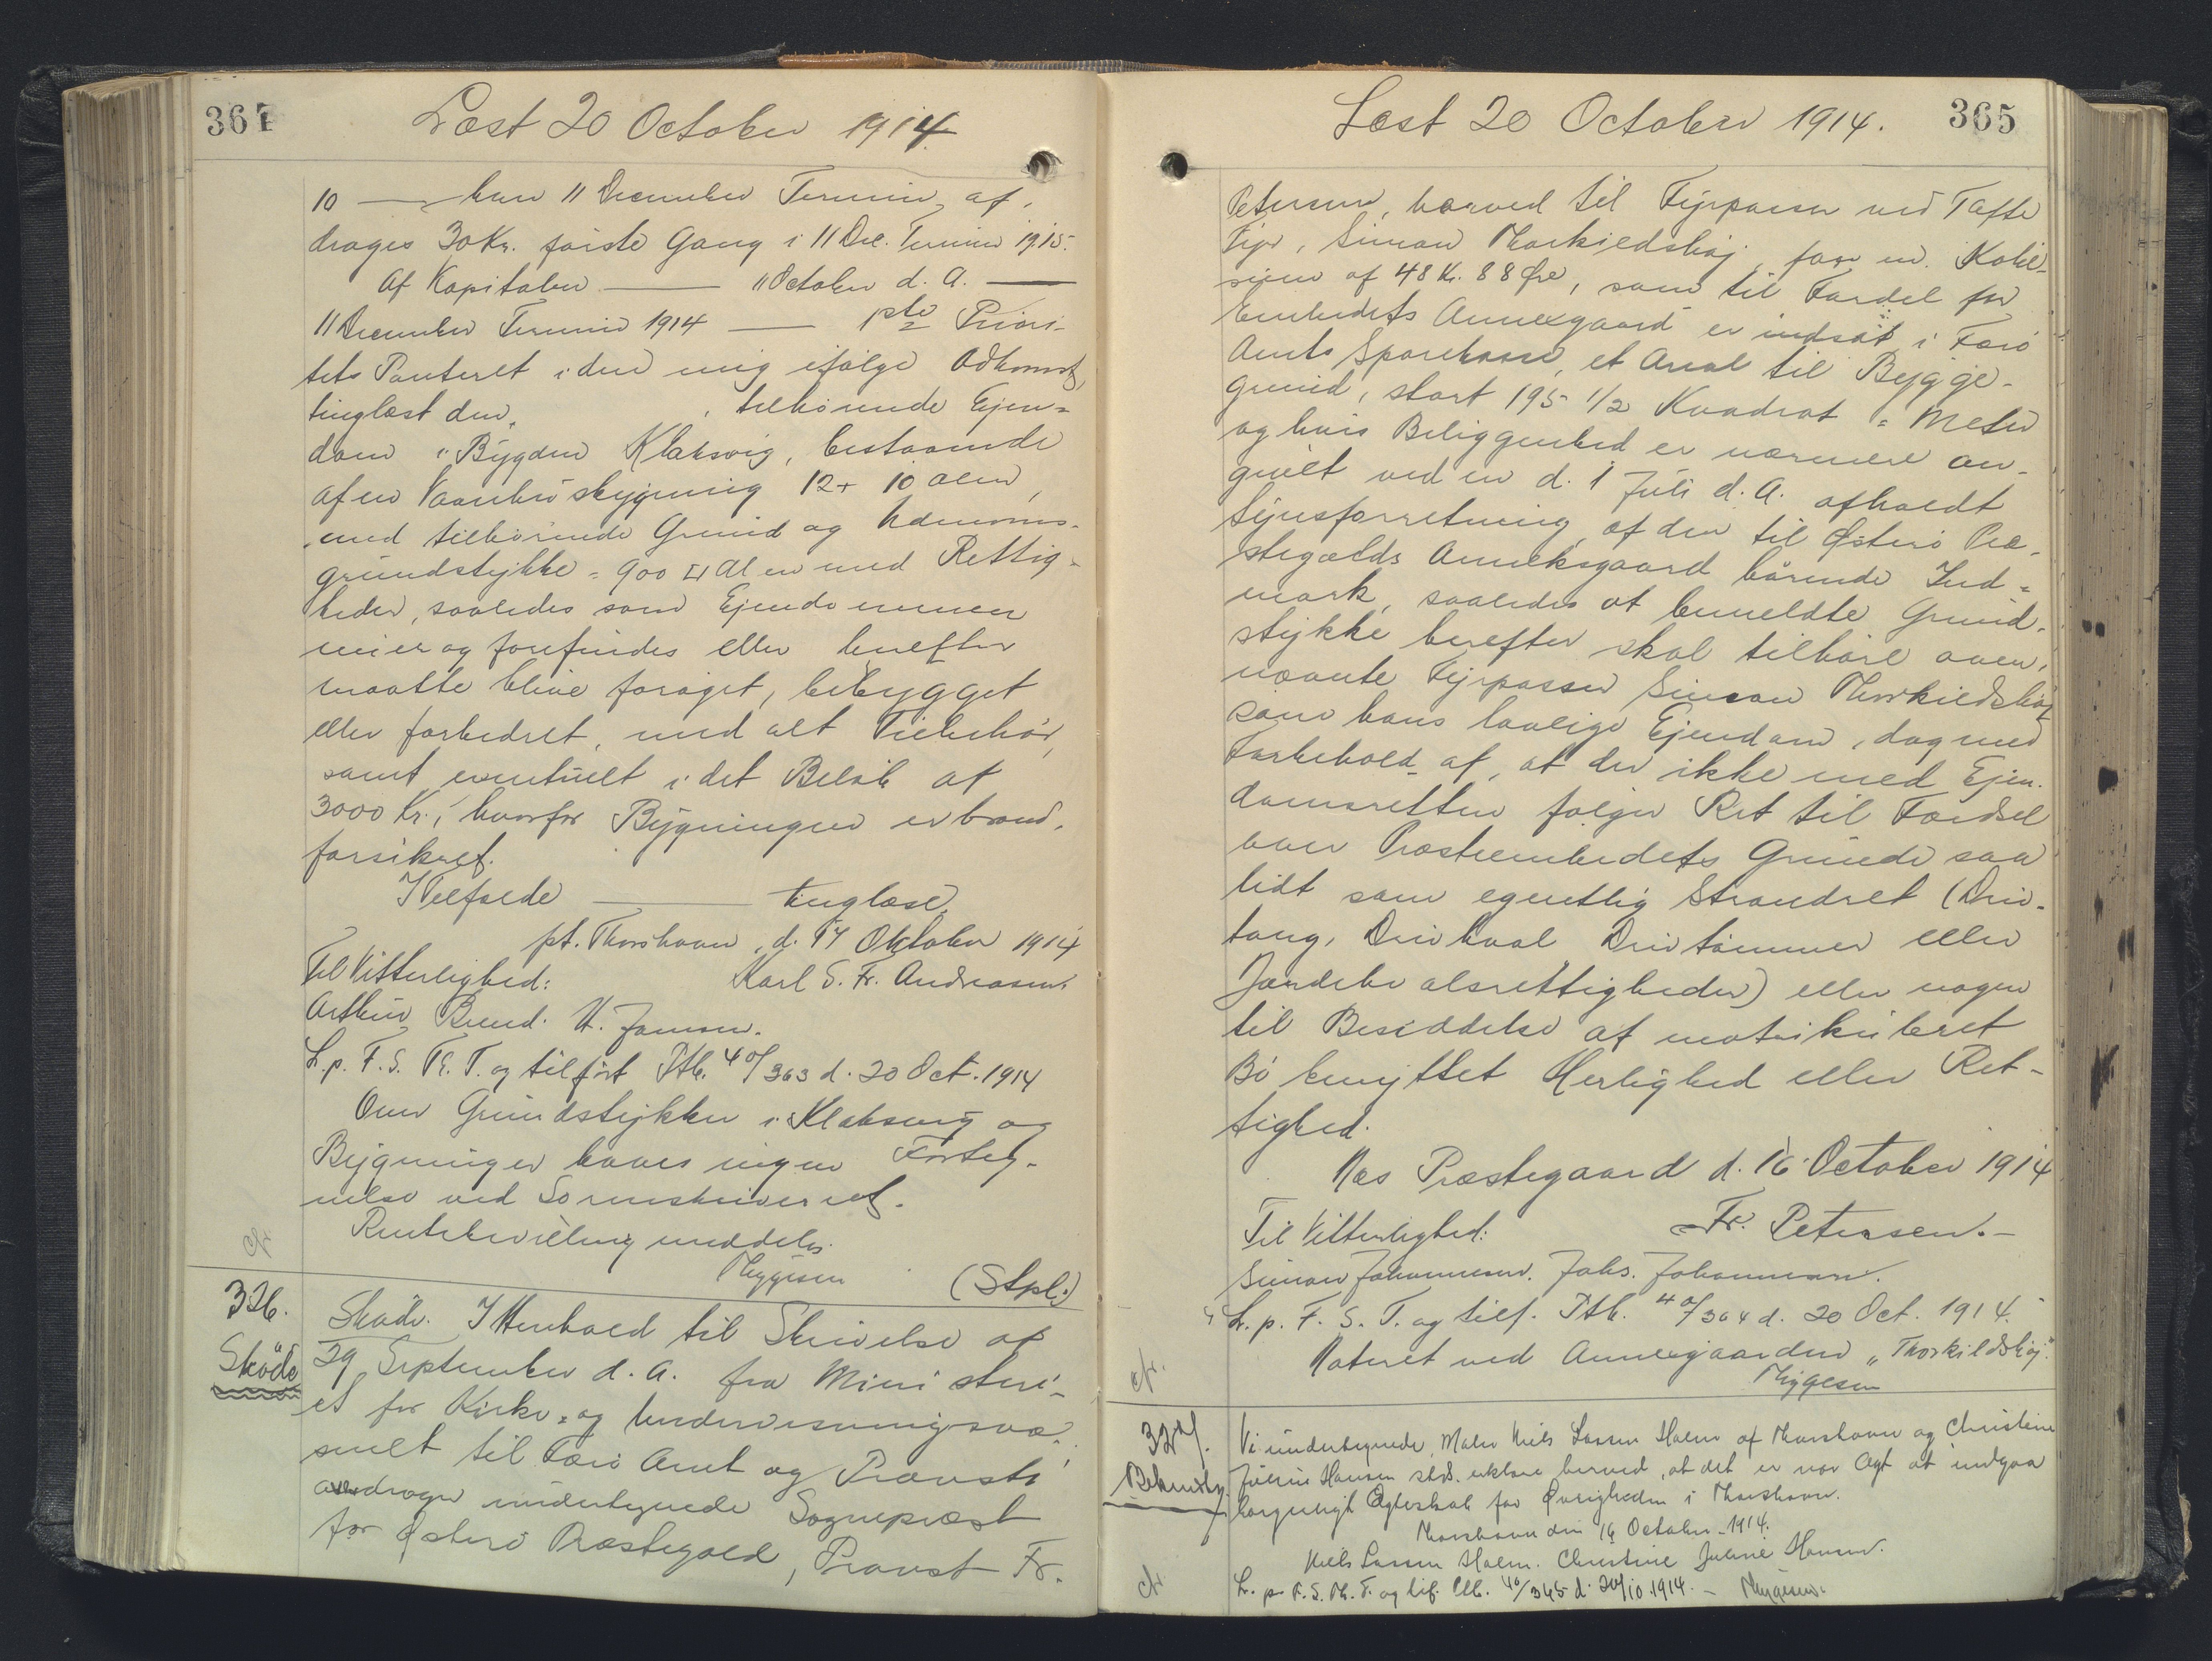 364
Læst 20 October 1914
10 — hver 11 December Termin, af-
drages 30 Kr. første Gang i 11 Dec. Termin 1915.
Af Kapitalen — 11 October d. A. —
11 December Termin 1914 — 1ste Priori-
tets Panteret i den mig ifølge Adkomst,
tinglæst den, tilhørende Ejen=
dom i Bygden Klaksvig, bestaaende
af en Vaaningsbygning 12 + 10 Alen,
med tilhørende Grund og Udenoms-
grundstykke = 900 □ Alen med Rettig-
heder, saaledes som Ejendommen
nu er og forefindes eller herefter
maatte blive forøget, bebygget
eller forbedret, med alt Tilbehør,
samt eventuelt i det Beløb af
3000 Kr., hvorfor Bygningen er brand-
forsikret.
I Tilfælde — tinglæse.
pt. Thorshavn, d. 17 Oktober 1914
Til Vitterlighed: Karl S. Fr. Andreasen.
Arthur Brend. H. Jensen.
L. p. F. S. Th. T. og tilført Ptb. 4 of/363 d. 20 Oct. 1914
Over Grundstykker i Klaksvig og
Bygninger haves ingen Forteg-
nelse ved Sorenskriveriet.
Rentebevilling meddeles.
Myggesen (Stpl.)
cfr.
326.
Skøde
Skøde. I Henhold til Skrivelse af
29 September d. A. fra Ministeri-
et for Kirke- og Undervisningsvæ-
snet til Færø Amt og Provsti
overdrager undertegnede Sognepræst
for Østerø Præstegæld, Provst Fr.
Læst 20 October 1914.
365
Petersen, herved til Fyrpasser ved Tofte
Fyr, Simon Thorkildshøj, for en Købe-
sum af 48 Kr. 88 Øre, som til Fordel for
Embedets Annexgaard er indsat i Færø
Amts Sparekasse, et Areal til Bygge-
grund, stort 195 1/2 Kvadrat = Meter
og hvis Beliggenhed er nærmere an-
givet ved en d. 1 Juli d. A. afholdt
Synsforretning, af den til Østerø Præ-
stegælds Anneksgaard hørende Ind=
mark, saaledes at bemeldte Grund-
stykke herefter skal tilhøre oven-
nævnte Fyrpasser Simon Thorkildshøj
som hans lovlige Ejendom, dog med
Forbehold af, at der ikke med Ejen-
domsretten følger Ret til Færdsel
over Præsteembedets Grunde saa
lidt som egentlig Strandret (Driv-
tang, Drivhval Drivtømmer eller
Jordebo alsrettigheder) eller nogen
til Besiddelse af matrikuleret
Bø benyttet Herlighed eller Ret-
tighed.
Næs Præstegaard d. 16 October 1914
Til Vitterlighed: Fr. Petersen.-
Simon Johannesen. Johs. Johannesen.
L. p. F. S. T. og tilf. Ptb. 4 of/364 d. 20 Oct. 1914.
Noteret ved Annexgaarden "Thorkildshøj".
Myggesen
cfr.
327.
Vi undertegnede, Maler Niels Larsen Holm af Thorshavn og Christine
Juline Hansen stds. erklære herved, at det er vor Agt at indgaa
borgerligt Ægteskab for Øvrigheden i Thorshavn.
Thorshavn den 16 October 1914.
Niels Larsen Holm. Christine Juline Hansen.
L. p. F. S. Th. T. og tilf. Ptb. 40/365 d. 20/10 1914. - Myggesen.
cfr